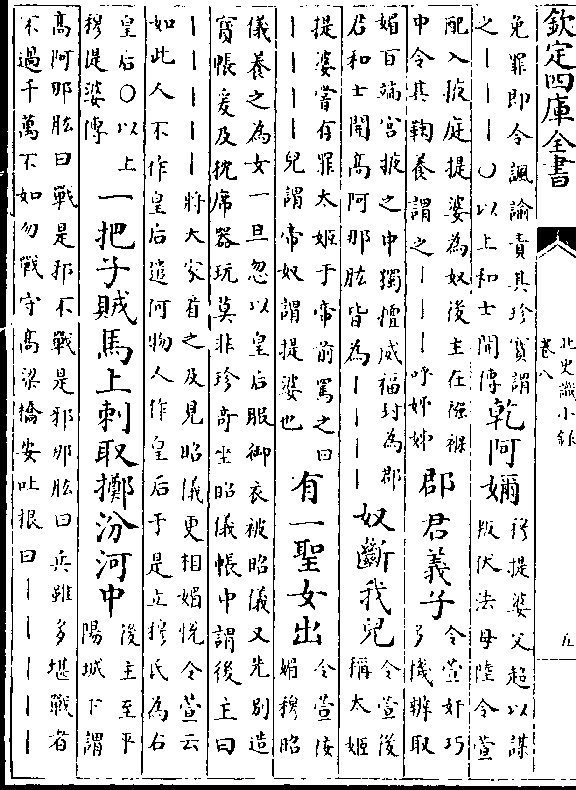 欽定四庫全書
北史識小錄
卷八
五
免罪即令諷諭責其珍寶謂
之｜｜｜○以上和士開傳
乾阿嬭
穆提婆父超以謀
叛伏法母陸令萱
配入掖庭提婆為奴後主在襁褓
中令其鞠養謂之｜｜｜呼姊姊
郡君義子
令萱奸巧
多機辦取
媚百端宮掖之中獨擅威福封為郡
君和士開高阿那肱皆為｜｜｜｜
奴斷我兒
令萱後
稱太姬
提婆嘗有罪太姬于帝前罵之曰
｜｜｜｜兒謂帝奴謂提婆也
有一聖女出
令萱後
媚穆昭
儀養之為女一旦忽以皇后服御衣被昭儀又先別造
寶帳爰及枕席器玩莫非珍奇坐昭儀帳中謂後主曰
｜｜｜｜｜將大家看之及見昭儀更相媚悅令萱云
如此人不作皇后遣何物人作皇后于是立穆氏為右
皇后○以上
穆提婆傳
一把子賊馬上刺取擲汾河中
後主至平
陽城下謂
高阿那肱曰戰是邪不戰是邪那肱曰兵雖多堪戰者
不過千萬不如勿戰守高梁橋安吐根曰｜｜｜｜｜